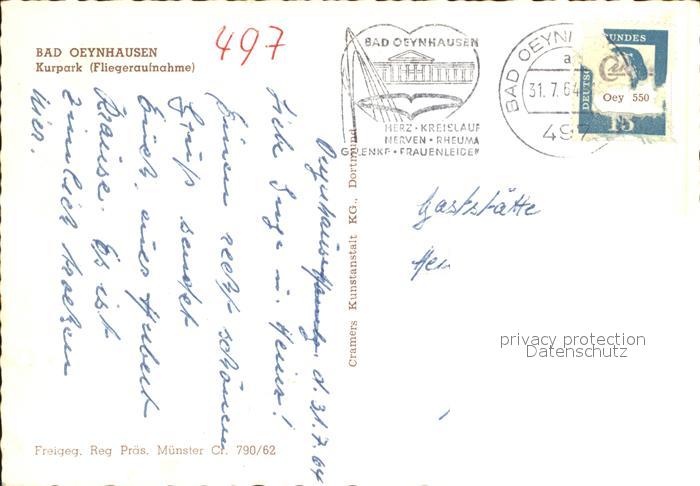 BAD OEYNHAUSEN
Kurpark (Fliegeraufnahme)
497
BAD OEYNHAUSEN
HERZ · KREISLAUF
NERVEN · RHEUMA
GELENKE · FRAUENLEIDEN
BAD OEYN
a
31.7.64
497
BUNDES
DEUTSCHE
Oey 550
15
d. 31.7.64
Liebe Inge u. Heinz!
Einen recht schönen
Gruß sendet
Euch, euer Hubert
Krause. Es ist
ziemlich trocken
hier.
Cramers Kunstanstalt KG., Dortmund
Gaststätte
privacy protection
Datenschutz
Freigeg. Reg Präs. Münster Cr. 790/62